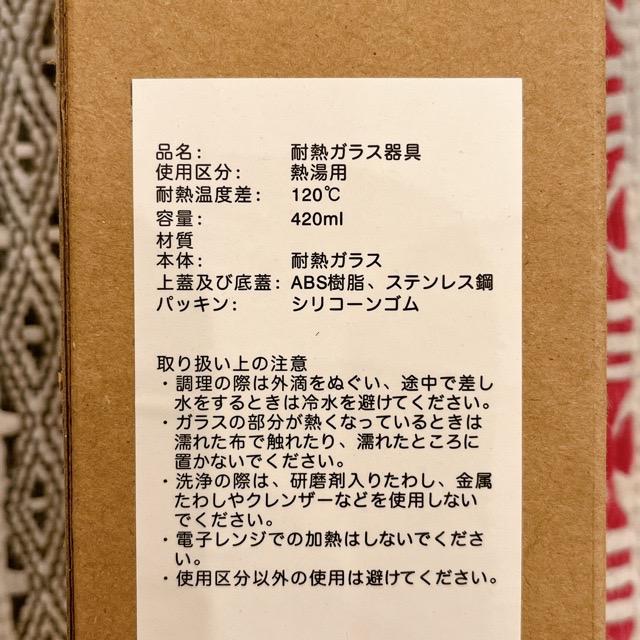 品名: 耐熱ガラス器具
使用区分: 熱湯用
耐熱温度差: 120℃
容量: 420ml
材質
本体: 耐熱ガラス
上蓋及び底蓋: ABS樹脂、ステンレス鋼
パッキン: シリコーンゴム
取り扱い上の注意
・調理の際は外滴をぬぐい、途中で差し
水をするときは冷水を避けてください。
・ガラスの部分が熱くなっているときは
濡れた布で触れたり、濡れたところに
置かないでください。
・洗浄の際は、研磨剤入りたわし、金属
たわしやクレンザーなどを使用しない
でください。
・電子レンジでの加熱はしないでくださ
い。
・使用区分以外の使用は避けてください。